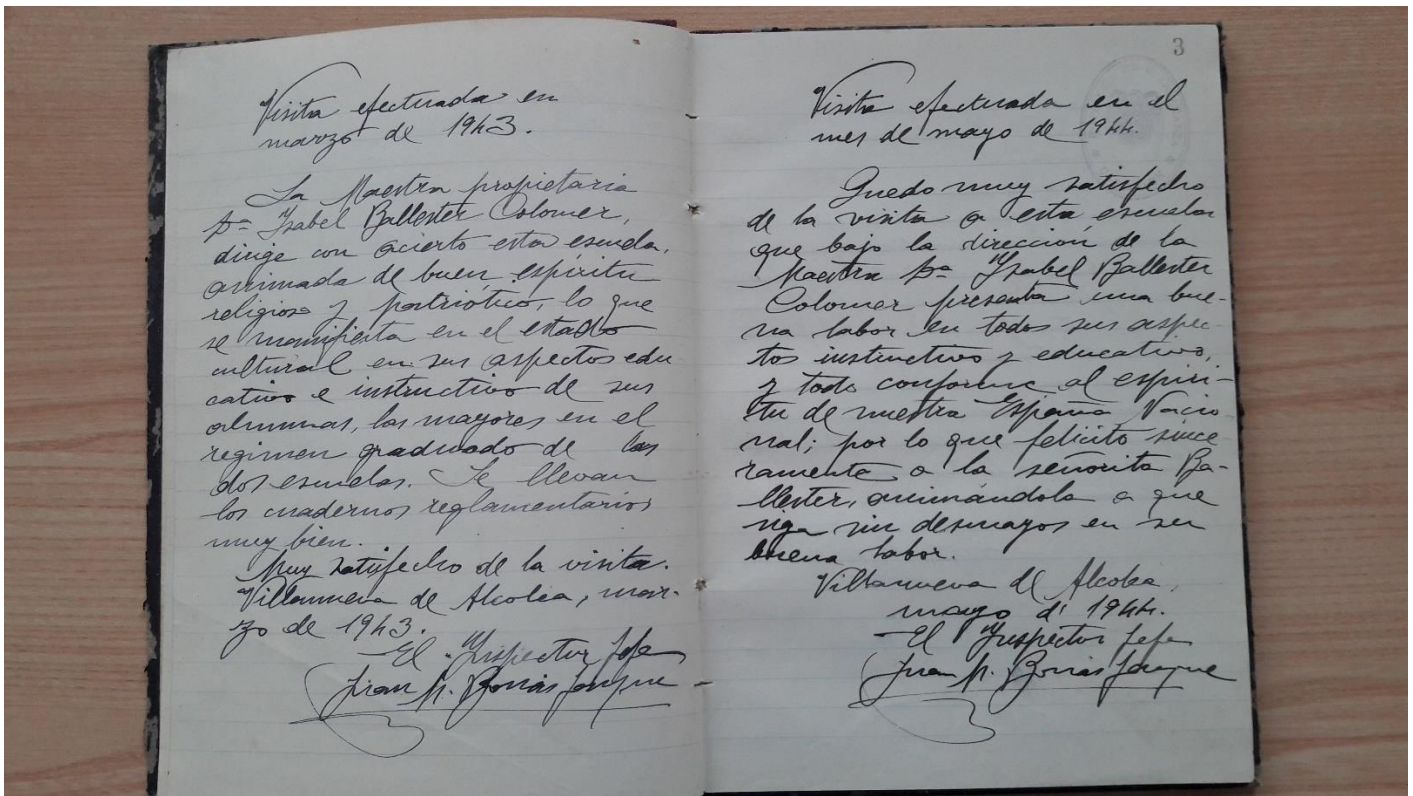 Visita efectuada en
marzo de 1943.
La Maestra propietaria
Dª Ysabel Ballester Colomer,
dirige con acierto esta escuela,
animada de buen espíritu
religioso y patriótico, lo que
se manifiesta en el estado
cultural en sus aspectos edu
cativo e instructivo de sus
alumnas, las mayores en el
regimen graduado de las
dos escuelas. Se llevan
los cuadernos reglamentarios
muy bien.
Muy satisfecho de la visita.
Villanueva de Alcolea, mar-
zo de 1943.
El Ynspector Jefe
Juan M. Borrás
3
Visita efectuada en el
mes de mayo de 1944.
Quedo muy satisfecho
de la visita a esta escuela
que bajo la dirección de la
Maestra Dª Ysabel Ballester
Colomer presenta una bue-
na labor en todos sus aspec-
tos instructivo y educativo,
y todo conforme al espíri-
tu de nuestra España Nacio
nal; por lo que felicito since
ramente a la señorita Ba-
llester, animándola a que
siga sin desmayos en su
buena labor.
Villanueva de Alcolea,
mayo d' 1944.
El Ynspector Jefe
Juan M. Borrás